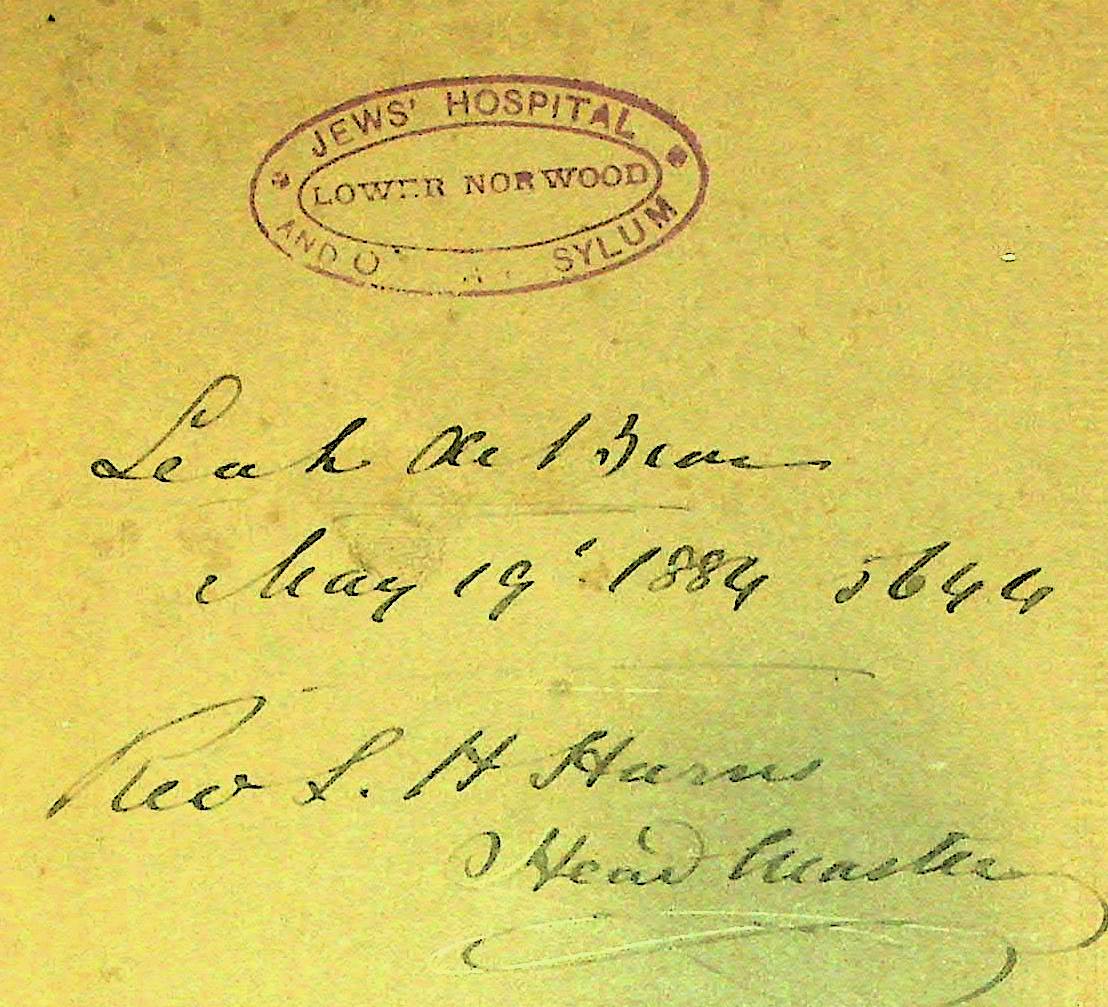 JEWS' HOSPITAL
LOWER NORWOOD
AND O SYLUM
Leah
May 19' 1884 5644
Rev S. H Harris
Head Master